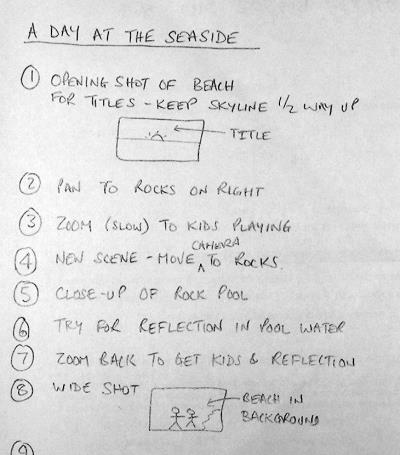 A DAY AT THE SEASIDE
① OPENING SHOT OF BEACH
FOR TITLES - KEEP SKYLINE 1/2 WAY UP
TITLE
② PAN TO ROCKS ON RIGHT
③ ZOOM (SLOW) TO KIDS PLAYING
④ NEW SCENE - MOVE CAMERA TO ROCKS.
⑤ CLOSE-UP OF ROCK POOL
⑥ TRY FOR REFLECTION IN POOL WATER
⑦ ZOOM BACK TO GET KIDS & REFLECTION
⑧ WIDE SHOT
BEACH IN
BACKGROUND
⑨